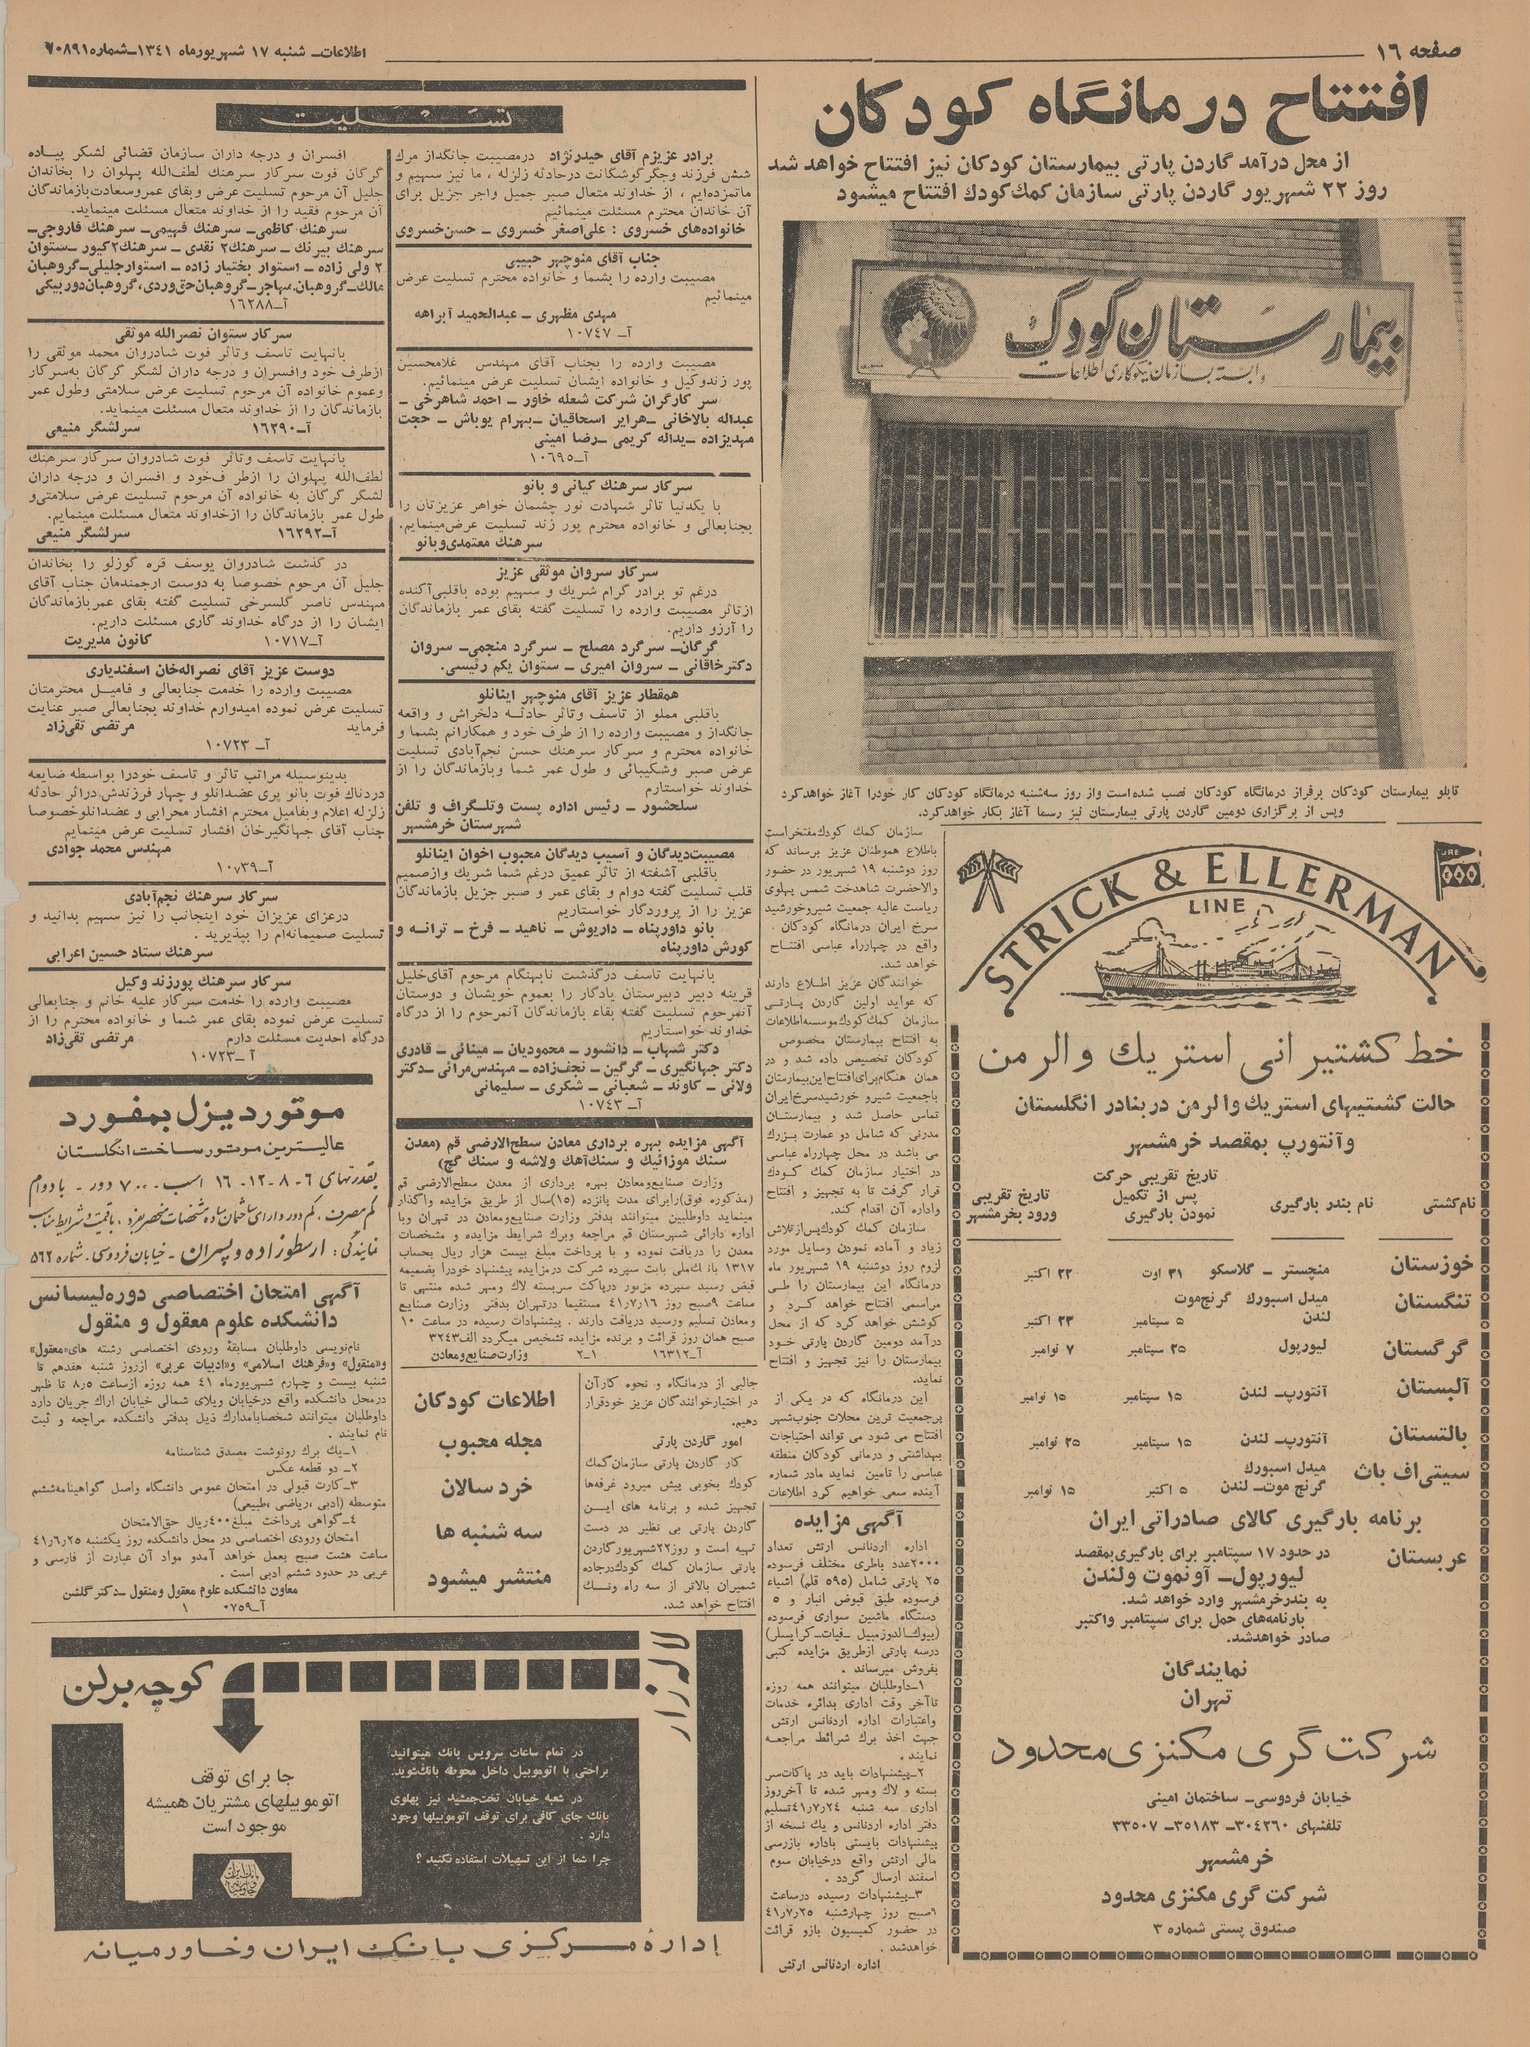 صفحه ۱۶
اطلاعات ـ شنبه ۱۷ شهریورماه ۱۳۴۱ ـ شماره ۱۰۸۹۱
افتتاح درمانگاه کودکان
از محل درآمد گاردن پارتی بیمارستان کودکان نیز افتتاح خواهد شد
روز ۲۲ شهریور گاردن پارتی سازمان کمك کودك افتتاح میشود
بیمارستان کودک
وابسته بسازمان نیکوکاری اطلاعات
تابلو بیمارستان کودکان برفراز درمانگاه کودکان نصب شده است واز روز سه‌شنبه درمانگاه کودکان کار خودرا آغاز خواهدکرد
وپس از برگزاری دومین گاردن پارتی بیمارستان نیز رسما آغاز بکار خواهدکرد.
سازمان کمك کودك مفتخر است
باطلاع هموطنان عزیز برساند که
روز دوشنبه ۱۹ شهریور در حضور
والاحضرت شاهدخت شمس پهلوی
ریاست عالیه جمعیت شیروخورشید
سرخ ایران درمانگاه کودکان
واقع در چهارراه عباسی افتتاح
خواهد شد.
خوانندگان عزیز اطلاع دارند
که عواید اولین گاردن پارتی
سازمان کمك کودك موسسه اطلاعات
به افتتاح بیمارستان مخصوص
کودکان تخصیص داده شد و در
همان هنگام برای افتتاح این بیمارستان
باجمعیت شیرو خورشیدسرخ ایران
تماس حاصل شد و بیمارستان
مدرنی که شامل دو عمارت بزرك
می باشد در محل چهارراه عباسی
در اختیار سازمان کمك کودك
قرار گرفت تا به تجهیز و افتتاح
واداره آن اقدام کند.
سازمان کمك کودك پس از تلاش
زیاد و آماده نمودن وسایل مورد
لزوم روز دوشنبه ۱۹ شهریور ماه
درمانگاه این بیمارستان را طی
مراسمی افتتاح خواهد کرد و
کوشش خواهد کرد که از محل
درآمد دومین گاردن پارتی خود
بیمارستان را نیز تجهیز و افتتاح
نماید.
این درمانگاه که در یکی از
پرجمعیت ترین محلات جنوب‌شهر
افتتاح می شود می تواند احتیاجات
بهداشتی و درمانی کودکان منطقه
عباسی را تامین نماید مادر شماره
آینده سعی خواهیم کرد اطلاعات
جالبی از درمانگاه و نحوه کارآن
در اختیارخوانندگان عزیز خودقرار
دهیم.
امور گاردن پارتی
کار گاردن پارتی سازمان‌کمك
کودك بخوبی پیش میرود غرفه‌ها
تجهیز شده و برنامه های این
گاردن پارتی بی نظیر در دست
تهیه است و روز۲۲شهریورگاردن
پارتی سازمان کمك کودك‌درجاده
شمیران بالاتر از سه راه ونك
افتتاح خواهد شد.
آگهی مزایده
اداره اردنانس ارتش تعداد
۲۰۰۰عدد باطری مختلف فرسوده
۲۵ پارتی شامل (۵۹۵ قلم) اشیاء
فرسوده طبق قبوض انبار و ۵
دستگاه ماشین سواری فرسوده
(بیوك‌ـالدوزمبیل ـفیات‌ـکرایسلر)
درسه پارتی ازطریق مزایده کتبی
بفروش میرساند .
۱ـداوطلبان میتوانند همه روزه
تاآخر وقت اداری بدائره خدمات
واعتبارات اداره اردنانس ارتش
جهت اخذ برك شرائط مراجعه
نمایند .
۲ـپیشنهادات باید در پاکات‌سر
بسته و لاك ومهر شده تا آخرروز
اداری سه شنبه ۴۱٫۷٫۲۴تسلیم
دفتر اداره اردنانس و یك نسخه از
پیشنهادات بایستی باداره بازرسی
مالی ارتش واقع درخیابان سوم
اسفند ارسال گردد .
۳ـپیشنهادات رسیده درساعت
۹صبح روز چهارشنبه ۴۱٫۷٫۲۵
در حضور کمیسیون بازو قرائت
خواهدشد .
اداره اردنانس ارتش
STRICK & ELLERMAN
LINE
خط کشتیرانی استریك و الرمن
حالت کشتیهای استریك والرمن دربنادر انگلستان
وآنتورپ بمقصد خرمشهر
نام‌کشتی نام بندر بارگیری تاریخ تقریبی حرکت پس از تکمیل نمودن بارگیری تاریخ تقریبی ورود بخرمشهر
خوزستان منچستر ـ گلاسکو ۳۱ اوت ۲۲ اکتبر
تنگستان میدل اسبورك گرنج‌موت لندن ۵ سپتامبر ۲۳ اکتبر
گرگستان لیورپول ۲۵ سپتامبر ۷ نوامبر
آلبستان آنتورپ‌ـ لندن ۱۵ سپتامبر ۱۵ نوامبر
بالتستان آنتورپ‌ـ لندن ۱۵ سپتامبر ۲۵ نوامبر
سیتی‌اف باث میدل اسبورك گرنج موت‌ـ لندن ۵ اکتبر ۱۵ نوامبر
برنامه بارگیری کالای صادراتی ایران
عربستان در حدود ۱۷ سپتامبر برای بارگیری‌بمقصد
لیورپول‌ـ آونموت ولندن
به بندرخرمشهر وارد خواهد شد.
بارنامه‌های حمل برای سپتامبر واکتبر
صادر خواهدشد.
نمایندگان
تهران
شرکت گری مکنزی محدود
خیابان فردوسی‌ـ ساختمان امینی
تلفنهای ۳۰۴۲۶۰ـ ۳۵۱۸۳ـ ۳۳۵۰۷
خرمشهر
شرکت گری مکنزی محدود
صندوق پستی شماره ۳
تسلیت
برادر عزیزم آقای حیدرنژاد درمصیبت جانگداز مرك
شش فرزند وجگرگوشگانت درحادثه زلزله ، ما نیز سهیم و
ماتمزده‌ایم ، از خداوند متعال صبر جمیل واجر جزیل برای
آن خاندان محترم مسئلت مینمائیم
خانواده‌های خسروی : علی‌اصغر خسروی ـ حسن‌خسروی
جناب آقای منوچهر حبیبی
مصیبت وارده را بشما و خانواده محترم تسلیت عرض
مینمائیم
مهدی مظهری ـ عبدالحمید آبراهه
آـ ۱۰۷۴۷
مصیبت وارده را بجناب آقای مهندس غلامحسین
پور زندوکیل و خانواده ایشان تسلیت عرض مینمائیم.
سر کارگران شرکت شعله خاور ـ احمد شاهرخی ـ
عبداله بالاخانی ـهرایر اسحاقیان ـبهرام یوباش ـ حجت
مهدیزاده ـیداله کریمی ـرضا امینی
آـ۱۰۶۹۵
سرکار سرهنك کیانی و بانو
با یکدنیا تاثر شهادت نور چشمان خواهر عزیزتان را
بجنابعالی و خانواده محترم پور زند تسلیت عرض‌مینمایم.
سرهنك معتمدی‌وبانو
سرکار سروان موثقی عزیز
درغم تو برادر گرام شریك و سهیم بوده باقلبی‌آکنده
ازتاثر مصیبت وارده را تسلیت گفته بقای عمر بازماندگان
را آرزو داریم.
گرگان‌ـ سرگرد مصلح ـ سرگرد منجمی‌ـ سروان
دکترخاقانی ـ سروان امیری ـ ستوان یکم رئیسی.
همقطار عزیز آقای منوچهر اینانلو
باقلبی مملو از تاسف وتاثر حادثه دلخراش و واقعه
جانگداز و مصیبت وارده را از طرف خود و همکارانم بشما و
خانواده محترم و سرکار سرهنك حسن نجم‌آبادی تسلیت
عرض صبر وشکیبائی و طول عمر شما وبازماندگان را از
خداوند خواستارم
سلحشور ـ رئیس اداره پست وتلگراف و تلفن
شهرستان خرمشهر
مصیبت‌دیدگان و آسیب دیدگان محبوب اخوان اینانلو
باقلبی آشفته از تاثر عمیق درغم شما شریك وازصمیم
قلب تسلیت گفته دوام و بقای عمر و صبر جزیل بازماندگان
عزیز را از پروردگار خواستاریم
بانو داورپناه ـ داریوش ـ ناهید ـ فرخ ـ ترانه و
کورش داورپناه
بانهایت تاسف درگذشت نابهنگام مرحوم آقای‌خلیل
قرینه دبیر دبیرستان یادگار را بعموم خویشان و دوستان
آنمرحوم تسلیت گفته بقاء بازماندگان آنمرحوم را از درگاه
خداوند خواستاریم
دکتر شهاب ـ دانشور ـ محمودیان ـ مینائی ـ قادری
دکتر جهانگیری ـ گرگین ـ نجف‌زاده ـ مهندس‌مرائی ـدکتر
ولائی ـ کاوند ـ شعبانی ـ شکری ـ سلیمانی
آـ ۱۰۷۴۳
آگهی مزایده بهره برداری معادن سطح‌الارضی قم (معدن
سنك موزائیك و سنك‌آهك ولاشه و سنك گچ)
وزارت صنایع‌ومعادن بهره برداری از معدن سطح‌الارضی قم
(مذکوره فوق)رابرای مدت پانزده (۱۵)سال از طریق مزایده واگذار
مینماید داوطلبین میتوانند بدفتر وزارت صنایع‌ومعادن در تهران ویا
اداره دارائی شهرستان قم مراجعه وبرك شرایط مزایده و مشخصات
معدن را دریافت نموده و با پرداخت مبلغ بیست هزار ریال بحساب
۱۳۱۷ بانك‌ملی بابت سپرده شرکت درمزایده پیشنهاد خودرا بضمیمه
قبض رسید سپرده مزبور درپاکت سربسته لاك ومهر شده منتهی تا
ساعت ۹صبح روز ۴۱٫۷٫۱۶ مستقیما درتهران بدفتر وزارت صنایع
ومعادن تسلیم ورسید دریافت دارند . پیشنهادات رسیده در ساعت ۱۰
صبح همان روز قرائت و برنده مزایده تشخیص میگردد الف۳۲۴۳
آـ۱۶۳۱۲ ۱ـ۲ وزارت‌صنایع‌ومعادن
اطلاعات کودکان
مجله محبوب
خرد سالان
سه شنبه ها
منتشر میشود
افسران و درجه داران سازمان قضائی لشکر پیاده
گرگان فوت سرکار سرهنك لطف‌الله پهلوان را بخاندان
جلیل آن مرحوم تسلیت عرض وبقای عمر وسعادت‌بازماندگان
آن مرحوم فقید را از خداوند متعال مسئلت مینماید.
سرهنك کاظمی‌ـ سرهنك فهیمی‌ـ سرهنك فاروجی‌ـ
سرهنك بیرنك ـ سرهنك۲ نقدی ـ سرهنك۲ کیور ـ ستوان
۲ ولی زاده ـ استوار بختیار زاده ـ استوارجلیلی‌ـ گروهبان
مالك‌ـ گروهبان مهاجر‌ـ گروهبان حق‌وردی، گروهبان‌دوربیکی
آـ۱۶۲۸۸
سرکار ستوان نصرالله موثقی
بانهایت تاسف وتاثر فوت شادروان محمد موثقی را
ازطرف خود وافسران و درجه داران لشکر گرگان به‌سرکار
وعموم خانواده آن مرحوم تسلیت عرض سلامتی وطول عمر
بازماندگان را از خداوند متعال مسئلت مینماید.
آـ۱۶۲۹۰ سرلشگر منیعی
بانهایت تاسف وتاثر فوت شادروان سرکار سرهنك
لطف‌الله پهلوان را ازطرف‌خود و افسران و درجه داران
لشگر گرگان به خانواده آن مرحوم تسلیت عرض سلامتی‌و
طول عمر بازماندگان را ازخداوند متعال مسئلت مینمایم.
آـ۱۶۲۹۲ سرلشگر منیعی
در گذشت شادروان یوسف قره گوزلو را بخاندان
جلیل آن مرحوم خصوصا به دوست ارجمندمان جناب آقای
مهندس ناصر گلسرخی تسلیت گفته بقای عمر بازماندگان
ایشان را از درگاه خداوند گاری مسئلت داریم.
آـ ۱۰۷۱۷ کانون مدیریت
دوست عزیز آقای نصراله‌خان اسفندیاری
مصیبت وارده را خدمت جنابعالی و فامیل محترمتان
تسلیت عرض نموده امیدوارم خداوند بجنابعالی صبر عنایت
فرماید مرتضی تقی‌زاد
آـ ۱۰۷۲۳
بدینوسیله مراتب تاثر و تاسف خودرا بواسطه ضایعه
دردناك فوت بانو پری عضدانلو و چهار فرزندش دراثر حادثه
زلزله اعلام وبفامیل محترم افشار محرابی و عضدانلوخصوصا
جناب آقای جهانگیرخان افشار تسلیت عرض مینمایم
مهندس محمد جوادی
آـ۱۰۷۳۹
سرکار سرهنك نجم‌آبادی
درعزای عزیزان خود اینجانب را نیز سهیم بدانید و
تسلیت صمیمانه‌ام را بپذیرید .
سرهنك ستاد حسین اعرابی
سرکار سرهنك پورزند وکیل
مصیبت وارده را خدمت سرکار علیه خانم و جنابعالی
تسلیت عرض نموده بقای عمر شما و خانواده محترم را از
درگاه احدیت مسئلت دارم مرتضی تقی‌زاد
آـ ۱۰۷۲۳
موتور دیزل بمفورد
عالیترین موتور ساخت انگلستان
بقدرتهای ۶ ـ ۸ ـ ۱۲ ـ ۱۶ اسب ـ ۷۰۰ دور ـ بادوام
کم مصرف ، کم دور دارای ساختمان ساده و مشخصات منحصربفرد ، باقیمت و شرایط مناسب
نمایندگی : ارسطوزاده و پسران ـ خیابان فردوسی ـ شماره ۵۶۲
آگهی امتحان اختصاصی دوره‌لیسانس
دانشکده علوم معقول و منقول
نام‌نویسی داوطلبان مسابقهٔ ورودی اختصاصی رشته های«معقول»
و«منقول» و«فرهنك اسلامی» و«ادبیات عربی» ازروز شنبه هفدهم تا
شنبه بیست و چهارم شهریورماه ۴۱ همه روزه ازساعت ۸٫۵ تا ظهر
درمحل دانشکده واقع درخیابان ویلای شمالی خیابان اراك جریان دارد
داوطلبان میتوانند شخصابامدارك ذیل بدفتر دانشکده مراجعه و ثبت
نام نمایند .
۱ـیك برك رونوشت مصدق شناسنامه
۲ـ دو قطعه عکس
۳ـکارت قبولی در امتحان عمومی دانشگاه واصل گواهینامه‌ششم
متوسطه (ادبی ،ریاضی ،طبیعی)
۴ـگواهی پرداخت مبلغ۴۰۰ریال حق‌الامتحان
امتحان ورودی اختصاصی در محل دانشکده روز یکشنبه ۴۱٫۶٫۲۵
ساعت هشت صبح بعمل خواهد آمدو مواد آن عبارت از فارسی و
عربی در حدود ششم ادبی است .
معاون دانشکده علوم معقول ومنقول ـدکتر گلشن
آـ۰۷۵۹ ۱
لاله زار
کوچه برلن
جا برای توقف
اتوموبیلهای مشتریان همیشه
موجود است
در تمام ساعات سرویس بانك میتوانید
براحتی با اتوموبیل داخل محوطه بانك‌شوید.
در شعبه خیابان تخت‌جمشید نیز پهلوی
بانك جای کافی برای توقف اتوموبیلها وجود
دارد .
چرا شما از این تسهیلات استفاده نکنید ؟
بانك ایران و خاورمیانه
ادارهٔ مرکزی بانك ایران و خاورمیانه